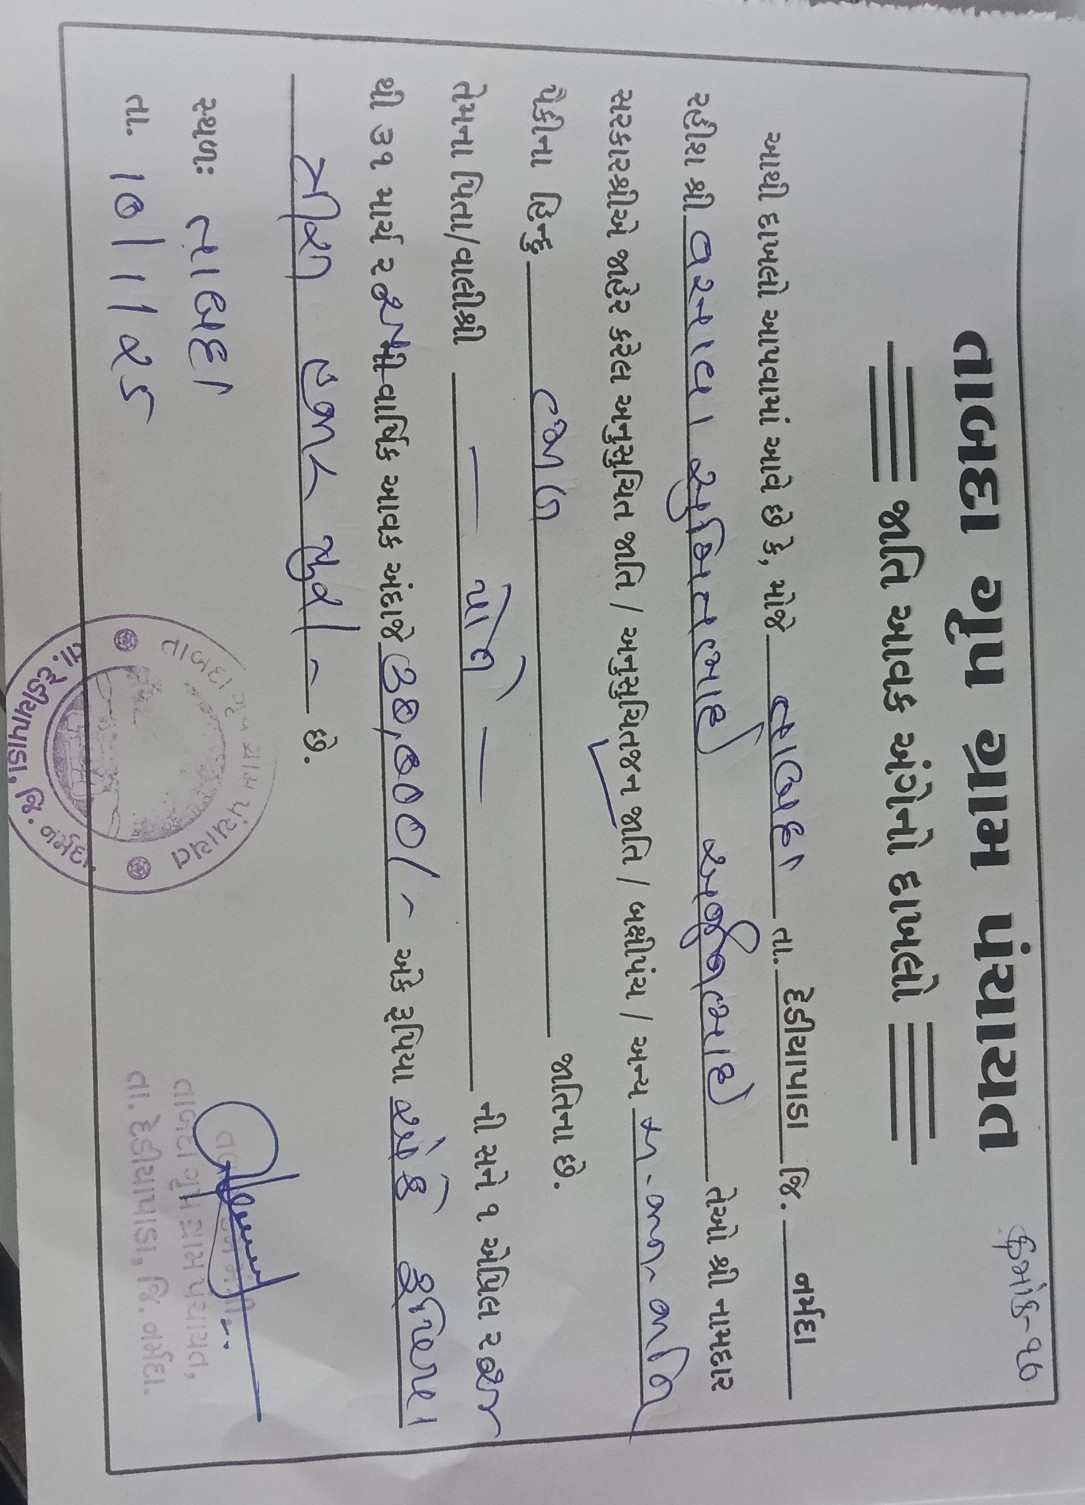 તાબદા ગ્રુપ ગ્રામ પંચાયત
ક્રમાંક-૧૭
જાતિ આવક અંગેનો દાખલો
આથી દાખલો આપવામાં આવે છે કે, મોજે તાબદા તા. દેડીયાપાડા જિ. નર્મદા
રહીશ શ્રી વસાવા સુમિતભાઈ અર્જુનભાઈ તેઓ શ્રી નામદાર
સરકારશ્રીએ જાહેર કરેલ અનુસુચિત જાતિ / અનુસુચિતજન જાતિ / બક્ષીપંચ / અન્ય અ.જન.જાતિ
પૈકીના હિન્દુ ભીલ જાતિના છે.
તેમના પિતા/વાલીશ્રી — પોતે — ની સને ૧ એપ્રિલ ૨
થી ૩૧ માર્ચ ૨ ની વાર્ષિક આવક અંદાજે ૩૦,૦૦૦/- અંકે રૂપિયા અંકે રૂપિયા
ત્રીસ હજાર પુરા - છે.
સ્થળઃ તાબદા
તા. 10/1/25
તાબદા ગ્રુપ ગ્રામ પંચાયત
તા. દેડીયાપાડા, જી. નર્મદા
તાબદા ગ્રુપ ગ્રામ પંચાયત,
તા. દેડીયાપાડા, જિ. નર્મદા.